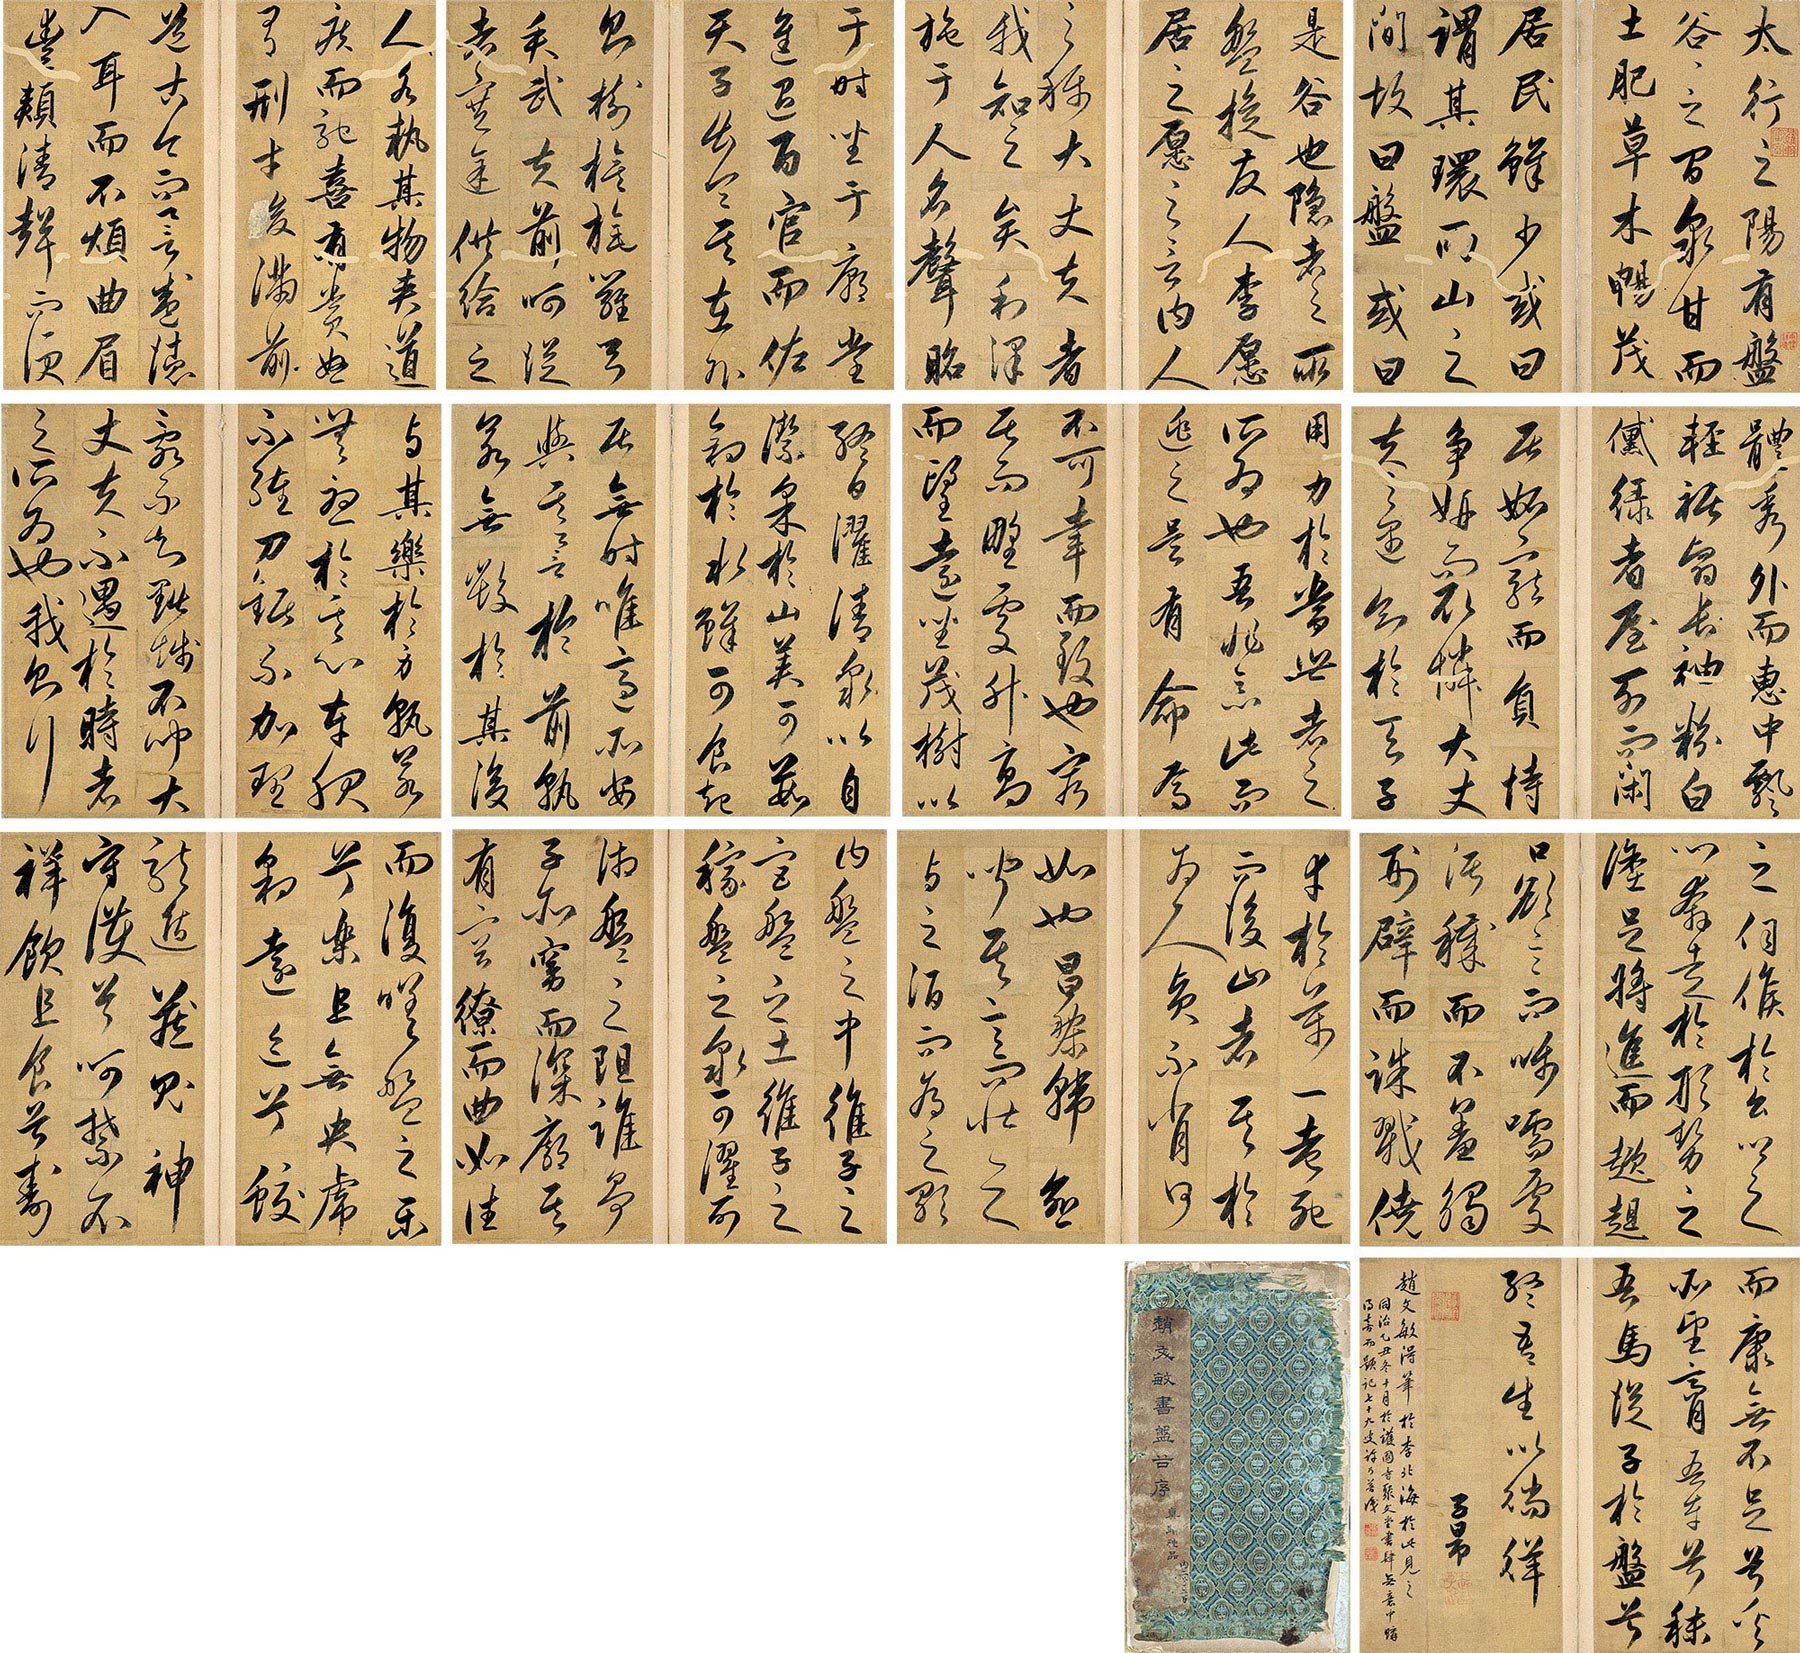 太行之陽有盤
谷〻之間泉甘而
土肥草木暢茂
居民鮮少或曰
謂其環兩山之
間故曰盤或曰
是谷也隱者之所
盤旋友人李愿
居之愿之言曰人
之稱大丈夫者
我知之矣利澤
施于人名聲昭
于時坐于廟堂
進退百官而佐
天子出令其在外
則樹旗旄羅弓
矢武夫前呵從
者塞途供給之
人各執其物夾道
疾而馳喜有賞怒
有刑才畯滿前
道古今而譽盛德
入耳而不煩曲眉
豐頰清聲而便
體秀外而惠中飄
輕裾翳長袖粉白
黛綠者屋列而閑
居妬寵而負恃
爭妍而取憐大丈
夫之遇知於天子
用力於當世者之
所為也吾非惡此而
逃之是有命焉
不可幸而致也窮
居而野處升高
而望遠坐茂樹以
終日濯清泉以自
潔采於山美可茹
釣於水鮮可食起
居無時唯適所安
與其譽於前孰
若無毀於其後
與其樂於身孰若
無憂於其心車服
不維刀鋸不加理
亂不知黜陟不聞大
丈夫不遇於時者
之所為也我則行
之伺候於公卿之
門奔走於形勢之
途足將進而趑趄
口欲言而囁嚅處
污穢而不羞觸
刑辟而誅戮僥
倖於萬一老死
而後止者其於
為人賢不肖何
如也昌黎韓愈
聞其言而壯之
與之酒而為之歌
曰盤之中維子之
宮盤之土維子之
稼盤之泉可濯可
湘盤之阻誰爭
子所窈而深廓其
有容繚而曲如往
而復嗟盤之樂
兮樂且無央虎
豹遠迹兮蛟
龍遁藏鬼神
守護兮呵禁不
祥飲且食兮壽
而康無不足兮奚
所望膏吾車兮秣
吾馬從子於盤兮
終吾生以徜徉
子昂
趙文敏得筆於李北海於此見之
同治乙丑冬十月於護國寺聚文堂書肆無意中購
得喜而題記七十九叟許乃普識
趙文敏書盤谷序
真跡神品